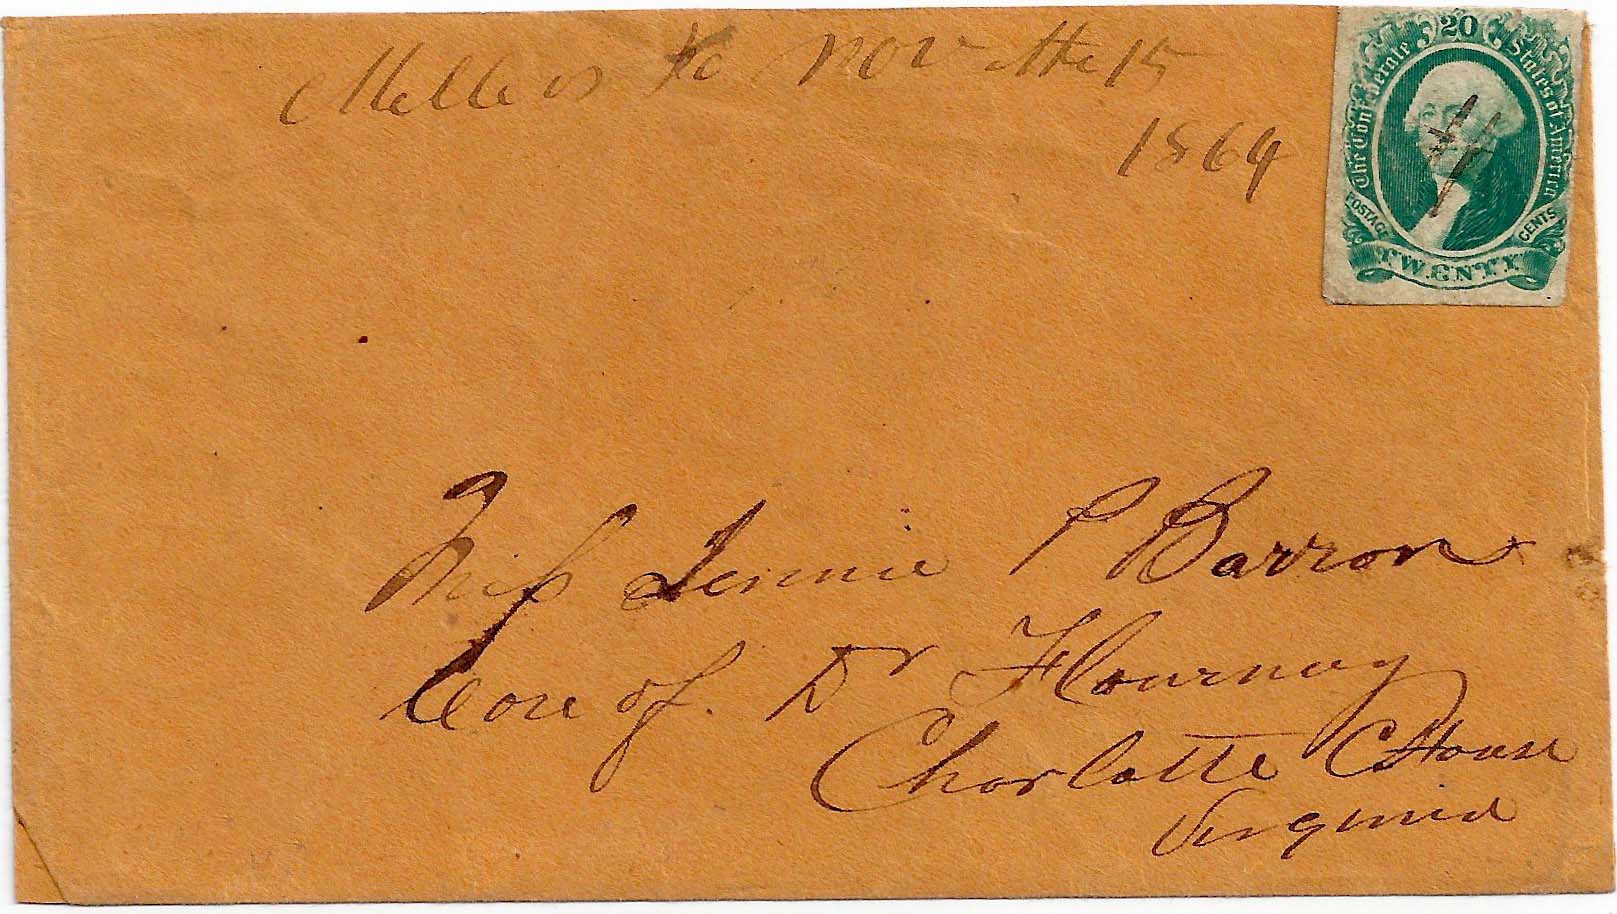 Mellers Va Nov the 15
1864
20
The Confederate States of America
POSTAGE CENTS
TWENTY
Miss Jennie P Barron
Care of. Dr Flournoy
Charlotte CHouse
Virginia